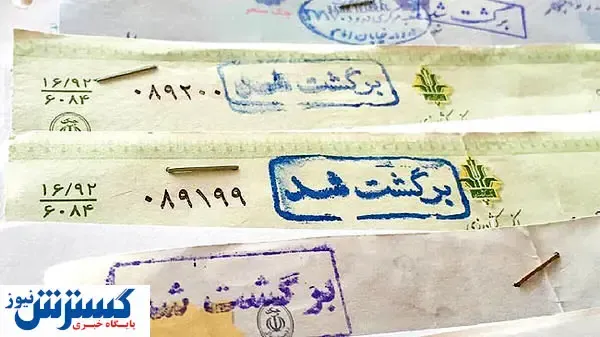 برگشت شد
۱۶/۹۲
۶۰۸۴
۰۸۹۲۰۰
برگشت شد
چک
۱۶/۹۲
۶۰۸۴
۰۸۹۱۹۹
برگشت شد
بانک کشاورزی
برگشت شد
گسترش نیوز
پایگاه خبری